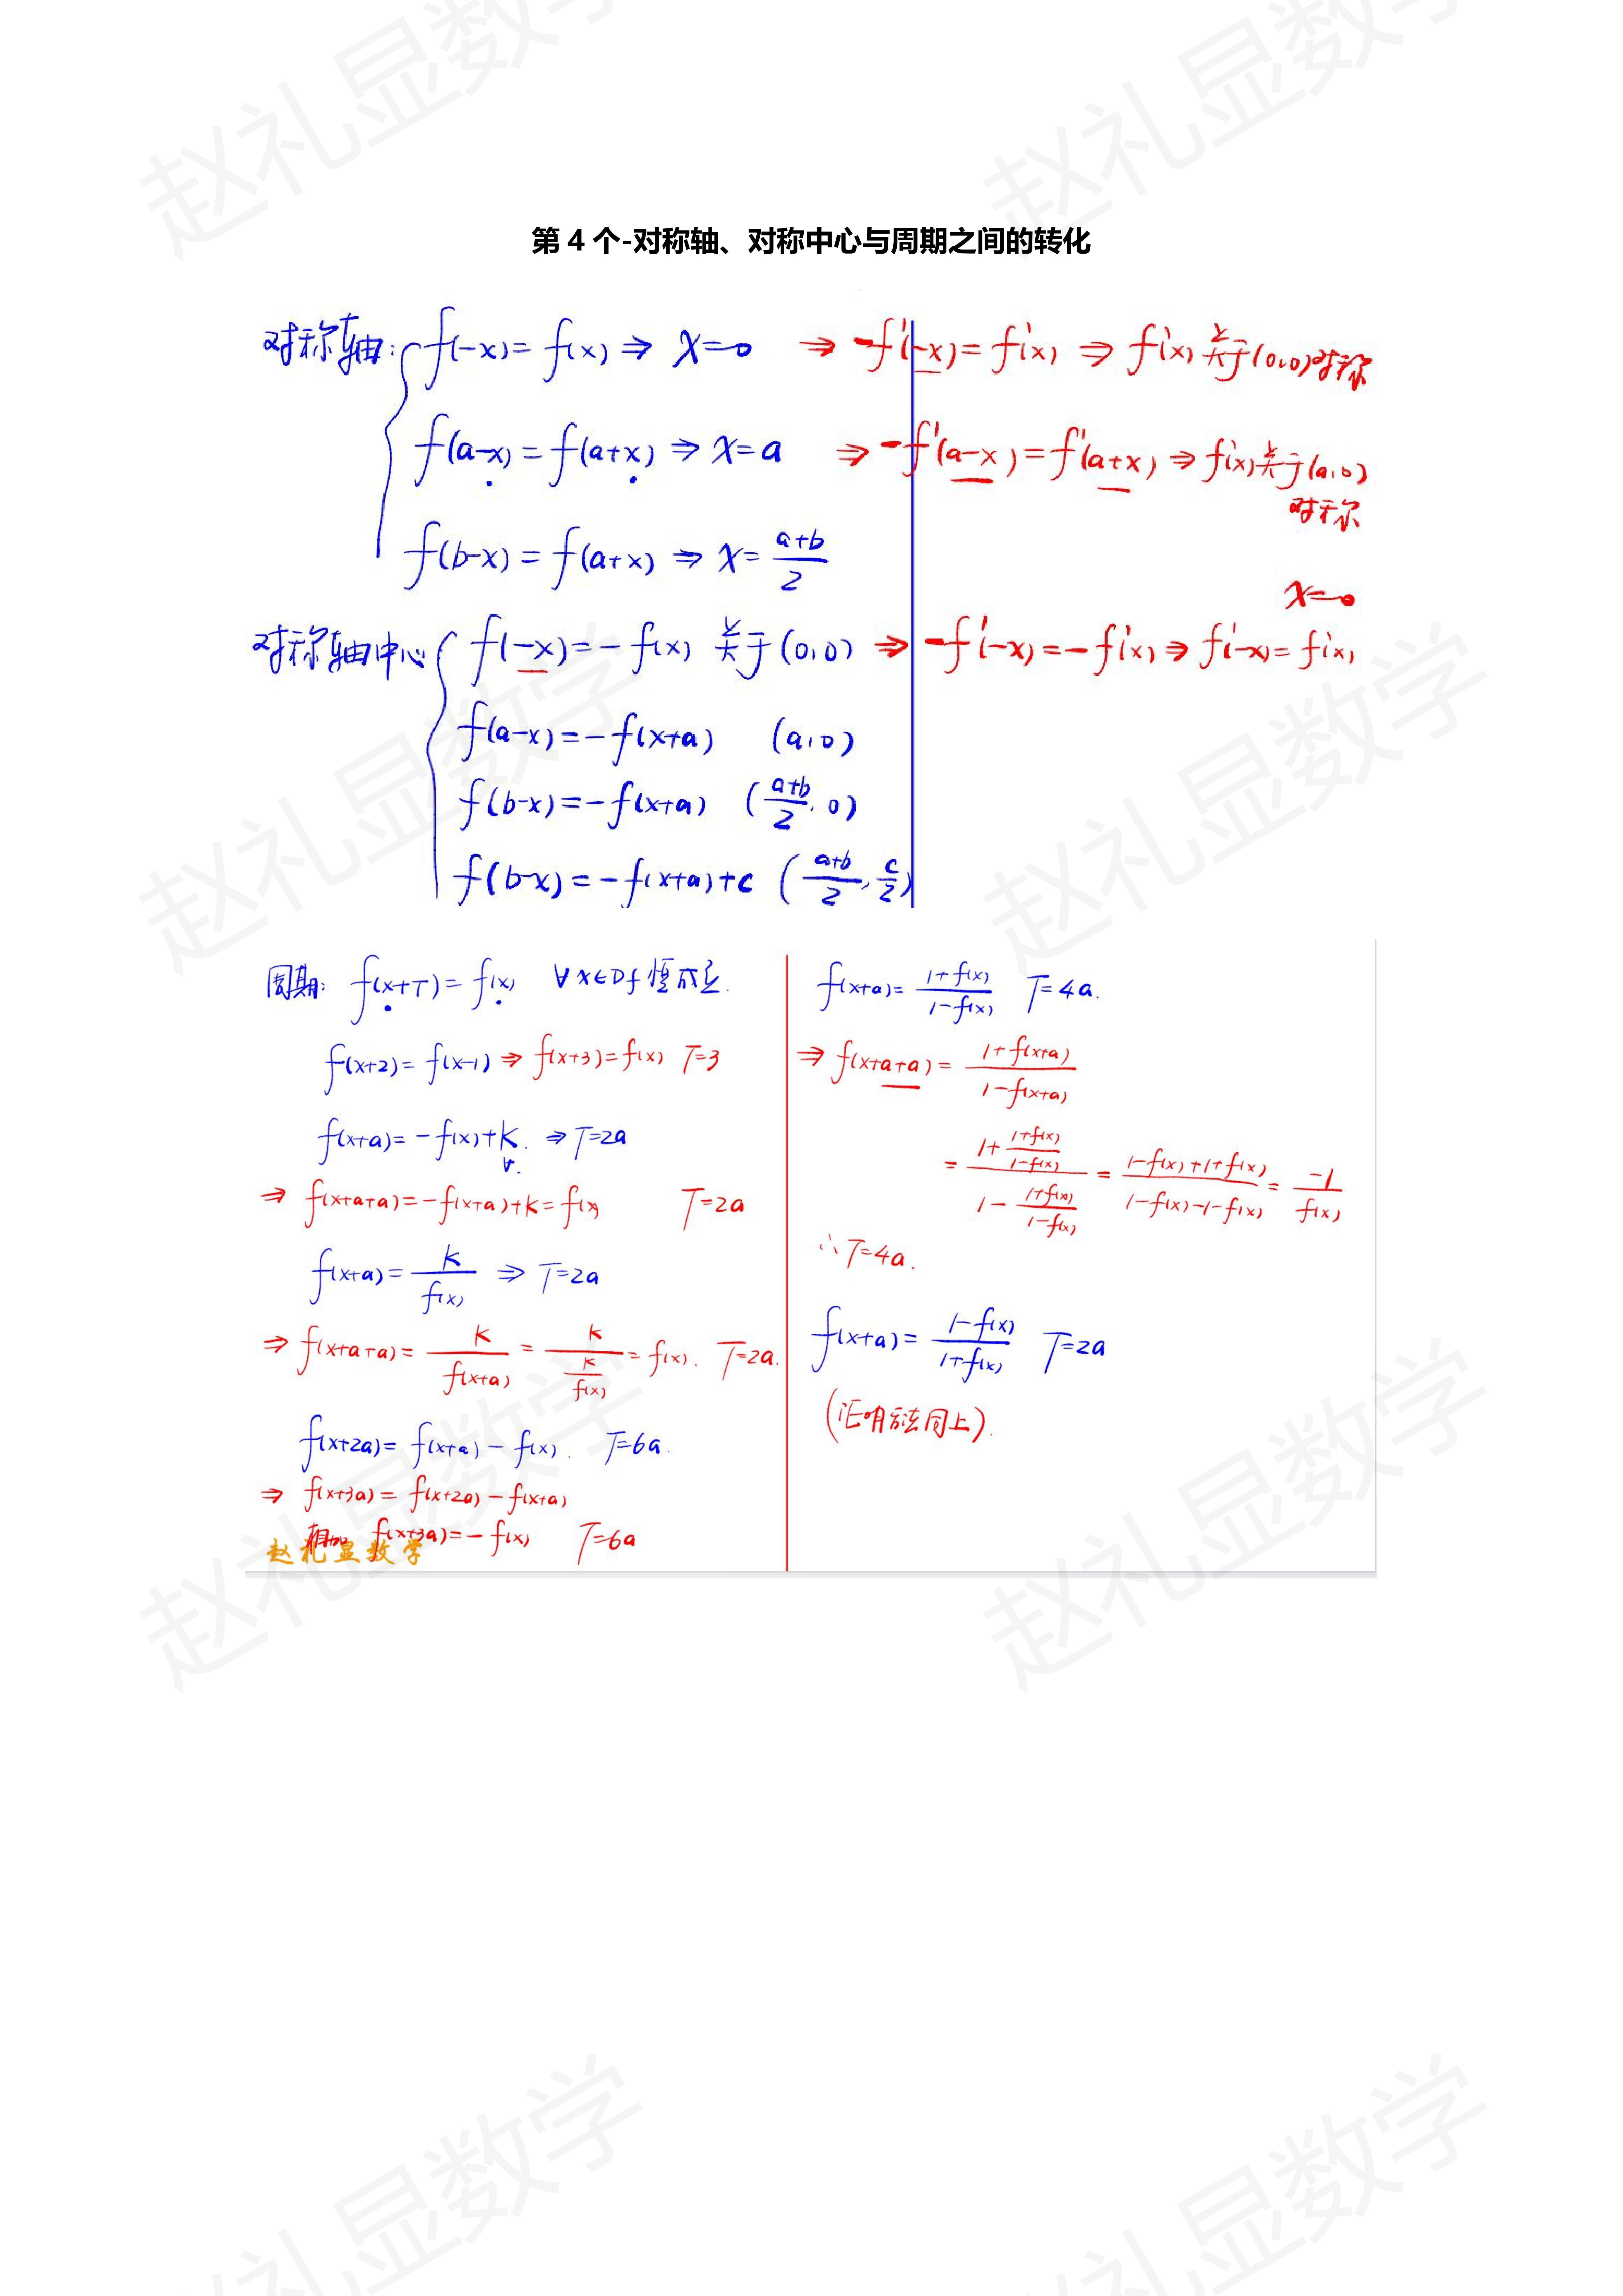 第 4 个-对称轴、对称中心与周期之间的转化
对称轴: f(-x)=f(x) ⇒ x=0 ⇒ -f'(-x)=f'(x) ⇒ f'(x)关于(0,0)对称
f(a-x)=f(a+x) ⇒ x=a ⇒ -f'(a-x)=f'(a+x) ⇒ f'(x)关于(a,0)
对称
f(b-x)=f(a+x) ⇒ x=\frac{a+b}{2}
x=0
对称轴中心 f(-x)=-f(x) 关于(0,0) ⇒ -f'(-x)=-f'(x) ⇒ f'(-x)=f'(x)
f(a-x)=-f(x+a) (a,0)
f(b-x)=-f(x+a) (\frac{a+b}{2},0)
f(b-x)=-f(x+a)+c (\frac{a+b}{2},\frac{c}{2})
周期: f(x+T)=f(x) ∀x∈Df恒成立.
f(x+2)=f(x-1) ⇒ f(x+3)=f(x) T=3
f(x+a)=-f(x)+k. ⇒ T=2a
∀.
⇒ f(x+a+a)=-f(x+a)+k=f(x) T=2a
f(x+a)=\frac{k}{f(x)} ⇒ T=2a
⇒ f(x+a+a)=\frac{k}{f(x+a)}=\frac{k}{\frac{k}{f(x)}}=f(x). T=2a.
f(x+2a)=f(x+a)-f(x). T=6a.
⇒ f(x+3a)=f(x+2a)-f(x+a)
相加 f(x+3a)=-f(x) T=6a
赵礼显数学
f(x+a)=\frac{1+f(x)}{1-f(x)} T=4a.
⇒ f(x+a+a)=\frac{1+f(x+a)}{1-f(x+a)}
=\frac{1+\frac{1+f(x)}{1-f(x)}}{1-\frac{1+f(x)}{1-f(x)}}=\frac{1-f(x)+1+f(x)}{1-f(x)-1-f(x)}=\frac{-1}{f(x)}
∴T=4a.
f(x+a)=\frac{1-f(x)}{1+f(x)} T=2a
(证明方法同上).
赵礼显数学
赵礼显数学
赵礼显数学
赵礼显数学
赵礼显数学
赵礼显数学
赵礼显数学
赵礼显数学